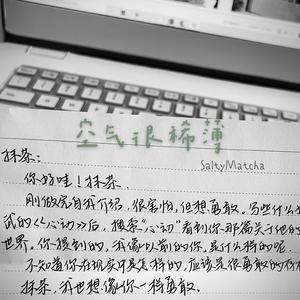 空气很稀薄
SaltyMatcha
抹茶：
你好哇！抹茶.
刚放完自我介绍，很害怕，但想勇敢。写些什么
武的《心动》后，搜索“心动”看到你那篇关于他的
世界。你提到的，我像以前的你，是什么样的呢
不知道你在现实中是怎样的，应该是很勇敢的
抹茶，我也想像你一样勇敢。